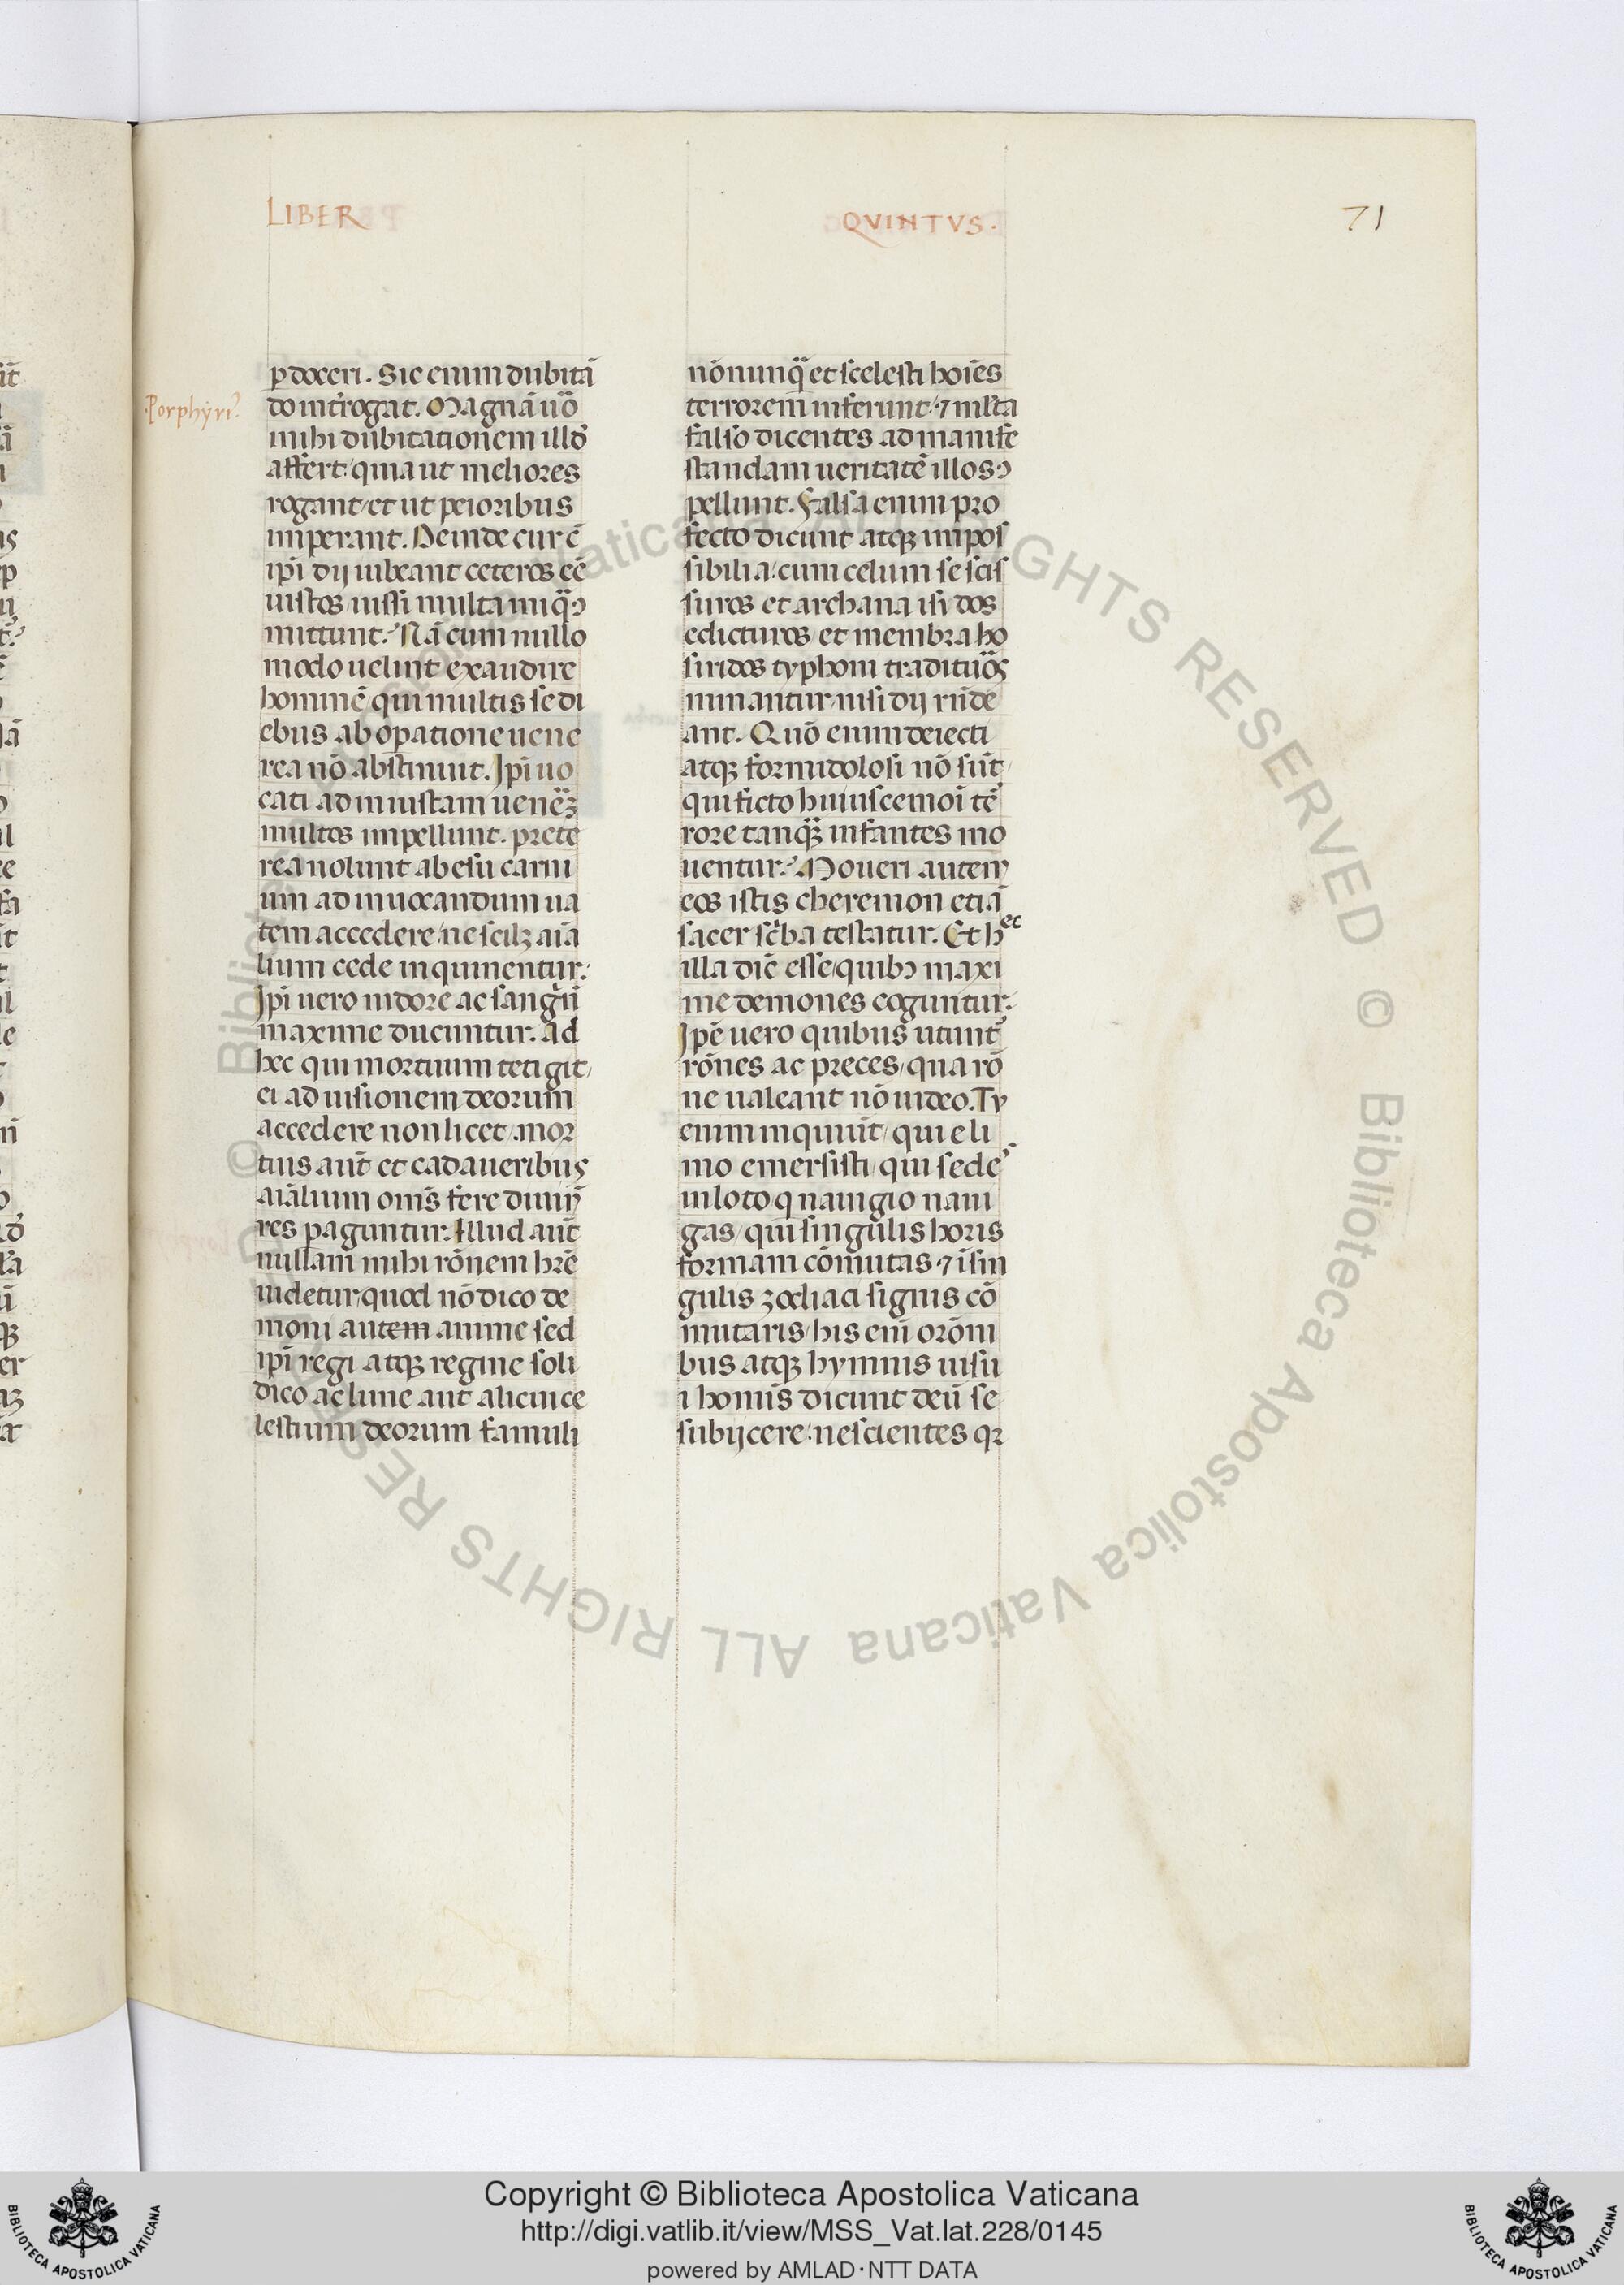 LIBER
QVINTVS.
71
Porphyri⁹.
p doceri. Sic enim dubitā
do int̄rogat. Magnā u͛o
mihi dubitationem illd̓
affert: quia ut meliores
rogant/ et ut peioribus
imperant. Deinde cur c̄
ip̄i dij iubeant ceteros eē
iustos/ iussi multa iniq̈ ꝯ
mittunt? Nā cum nullo
modo uelint exaudire
hominē/ qui multis se di
ebus ab op̄atione uene
rea nō abstinuit. Ip̄i uo
cati ad iniustam uenēꝫ
multos impellunt. prete
rea nolunt ab esu carni
um ad inuocandum ua
tem accedere/ ne scilꝫ aīa
lium cede inquinentur.
Ip̄i uero nidore ac sangūi
maxime ducuntur. Ad
hec qui mortuum tetigit/
ei ad uisionem deorum
accedere non licet/ mor
tuis aūt et cadaueribus
aīalium om̄s fere diuin̄
res paguntur. Illud aūt
nullam mihi rōnem hr̄e
uidetur/ quod nō dico de
moni autem anime sed
ip̄i regi atqꝫ regine soli
dico ac lune aut alicui ce
lestium deorum famuli
nōnunq̈ et scelesti hoīes
terrorem inferunt/ ⁊ mlt̄a
falso dicentes ad manife
standam ueritatē illos ꝯ
pellunt. Falsa enim pro
fecto dicunt atqꝫ impos
sibilia: cum celum se scis
suros et archana isidos
edicturos/ et membra ho
siridos typhoni tradituros
minantur/ nisi dij rn̄de
ant. Quō enim deiecti
atqꝫ formidolosi nō sūt/
qui ficto huiuscemōi tē
rore tanqꝫ infantes mo
uentur? Moueri autem
eos istis cheremon etiā
sacer sc̄ba testatur. Et hec
illa dic̄ esse/ quibꝰ maxi
me demones coguntur.
Ip̄e uero quibus utunt̓
rōnes ac preces/ qua rō
ne ualeant nō uideo. Tu
enim inquiūt/ qui e li
mo emersisti/ qui sede⁹
in loto q nauigio naui
gas/ qui singulis horis
formam cōmutas/ ⁊ ī sin
gulis zodiaci signis cō
mutaris/ his enī orōni
bus atqꝫ hymnis uisu
i homīs dicunt deū se
subijcere: nescientes qꝛ
Copyright © Biblioteca Apostolica Vaticana
http://digi.vatlib.it/view/MSS_Vat.lat.228/0145
powered by AMLAD·NTT DATA
BIBLIOTECA APOSTOLICA VATICANA
BIBLIOTECA APOSTOLICA VATICANA
© Biblioteca Apostolica Vaticana ALL RIGHTS RESERVED © Biblioteca Apostolica Vaticana ALL RIGHTS RESERVED